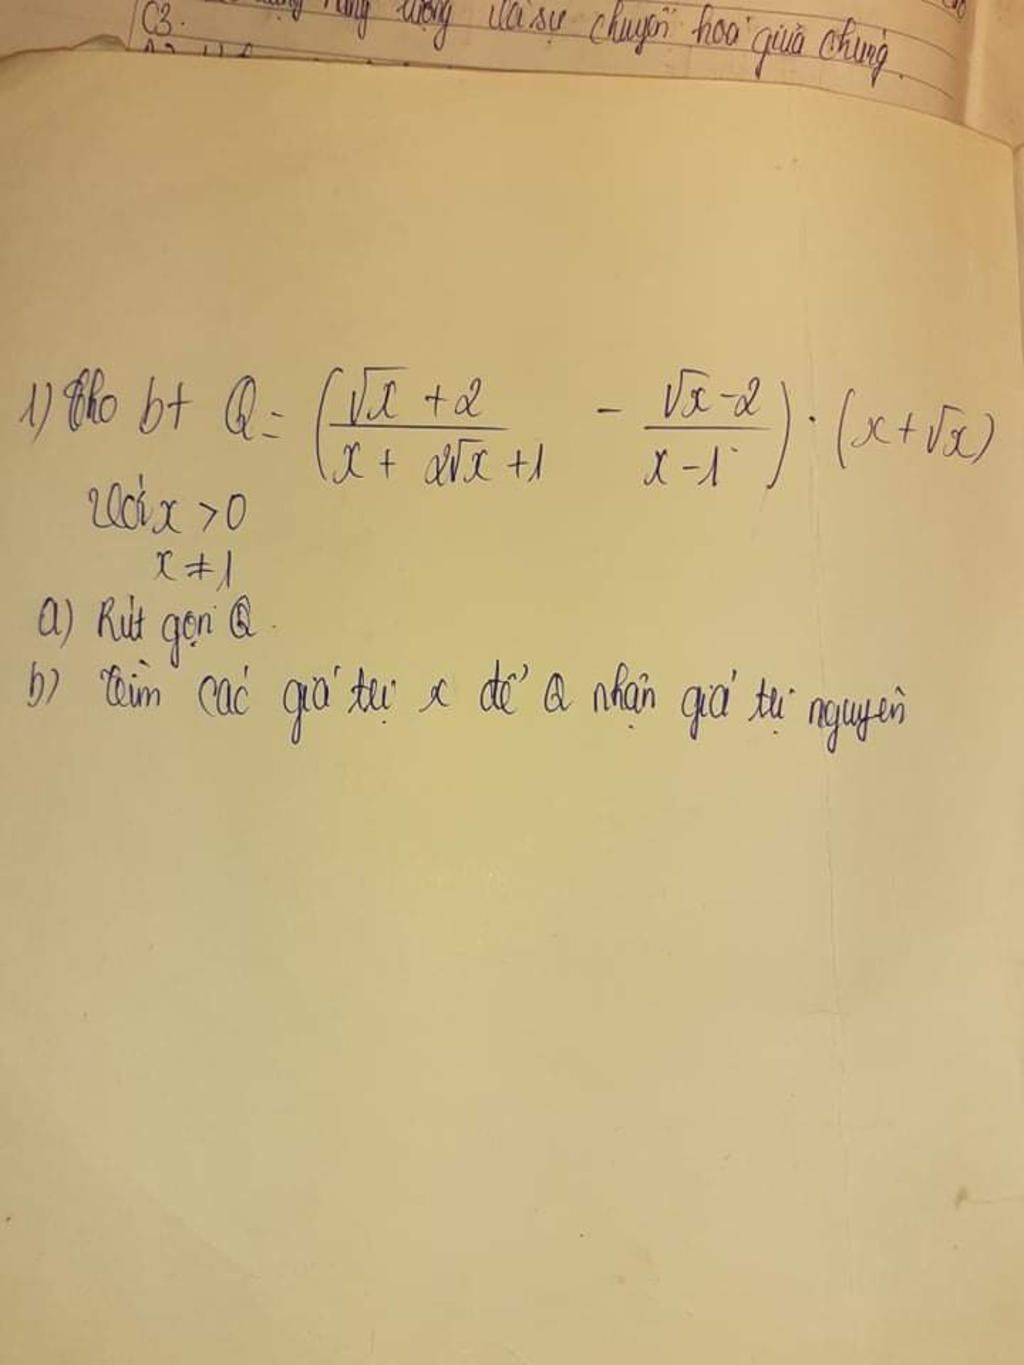 C3. năng lượng và sự chuyển hoá giữa chúng.
1) Cho bt Q = (√x + 2 / x + 2√x + 1 - √x - 2 / x - 1) . (x + √x)
Với x > 0
x ≠ 1
a) Rút gọn Q.
b) Tìm các giá trị x để Q nhận giá trị nguyên